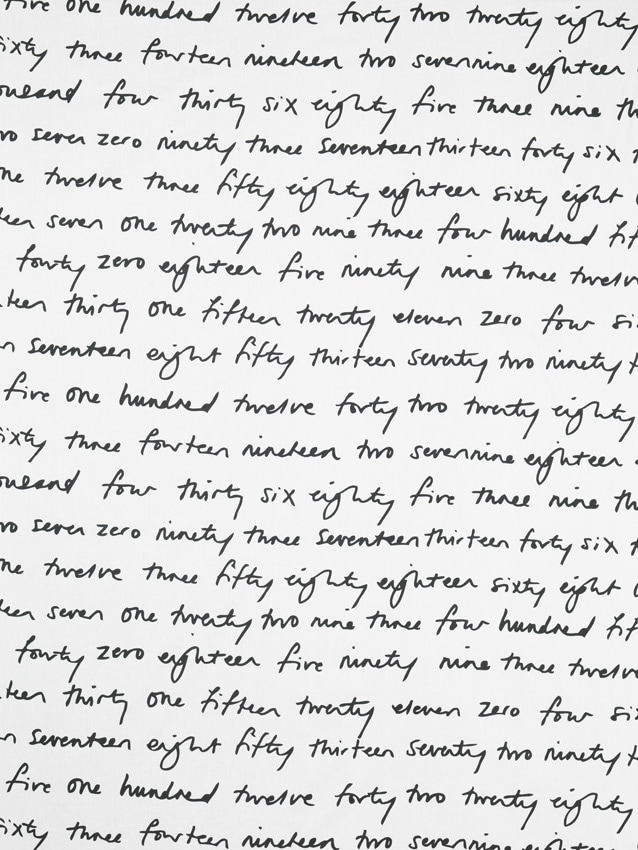 five one hundred twelve forty two twenty eighty
sixty three fourteen nineteen two seven nine eighteen
four thirty six eighty five three nine
seven zero ninety three seventeen thirteen forty six
twelve three fifty eighty eighteen sixty eight
seven one twenty two nine three four hundred
fourty zero eighteen five ninety nine three twelve
thirty one fifteen twenty eleven zero four
seventeen eight fifty thirteen seventy two ninety
five one hundred twelve forty two twenty eighty
sixty three fourteen nineteen two seven nine eighteen
four thirty six eighty five three nine
seven zero ninety three seventeen thirteen forty six
twelve three fifty eighty eighteen sixty eight
seven one twenty two nine three four hundred
fourty zero eighteen five ninety nine three twelve
thirty one fifteen twenty eleven zero four
seventeen eight fifty thirteen seventy two ninety
five one hundred twelve forty two twenty eighty
sixty three fourteen nineteen two seven nine eighteen